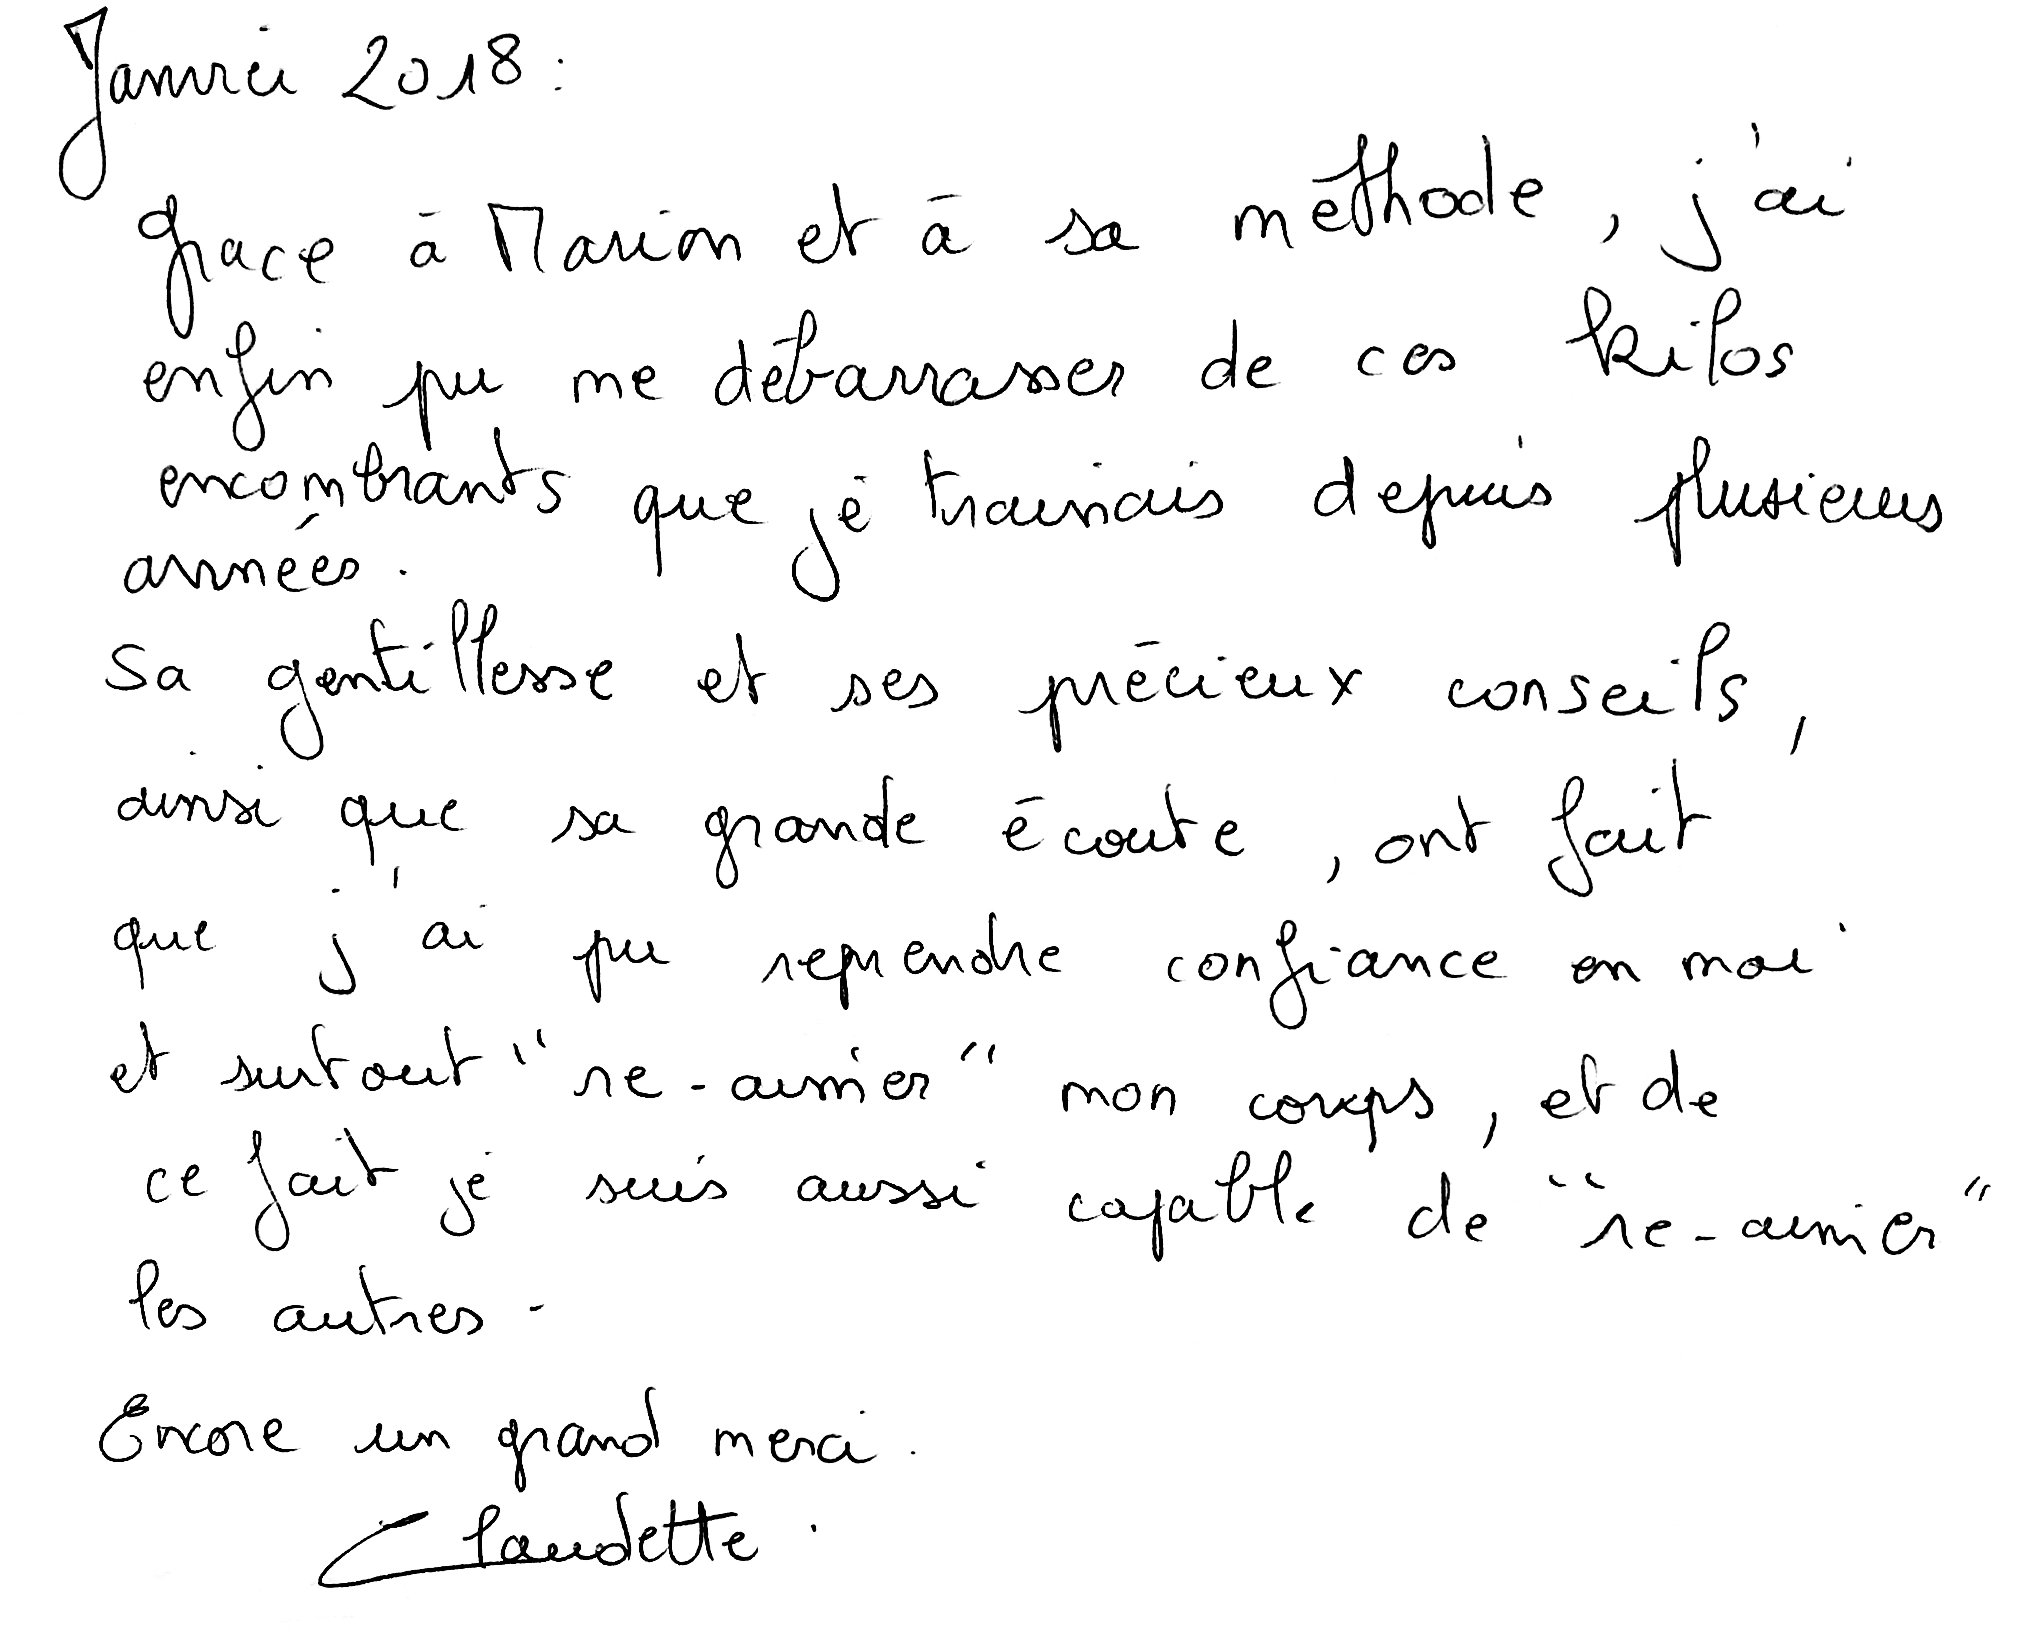 Janvier 2018 :
Grace à Marion et à sa méthode, j'ai
enfin pu me débarrasser de ces kilos
encombrants que je trainais depuis plusieurs
années.
Sa gentillesse et ses précieux conseils,
ainsi que sa grande écoute, ont fait
que j'ai pu reprendre confiance en moi
et surtout "re-aimer" mon corps, et de
ce fait je suis aussi capable de "re-aimer"
les autres.
Encore un grand merci.
Claudette.